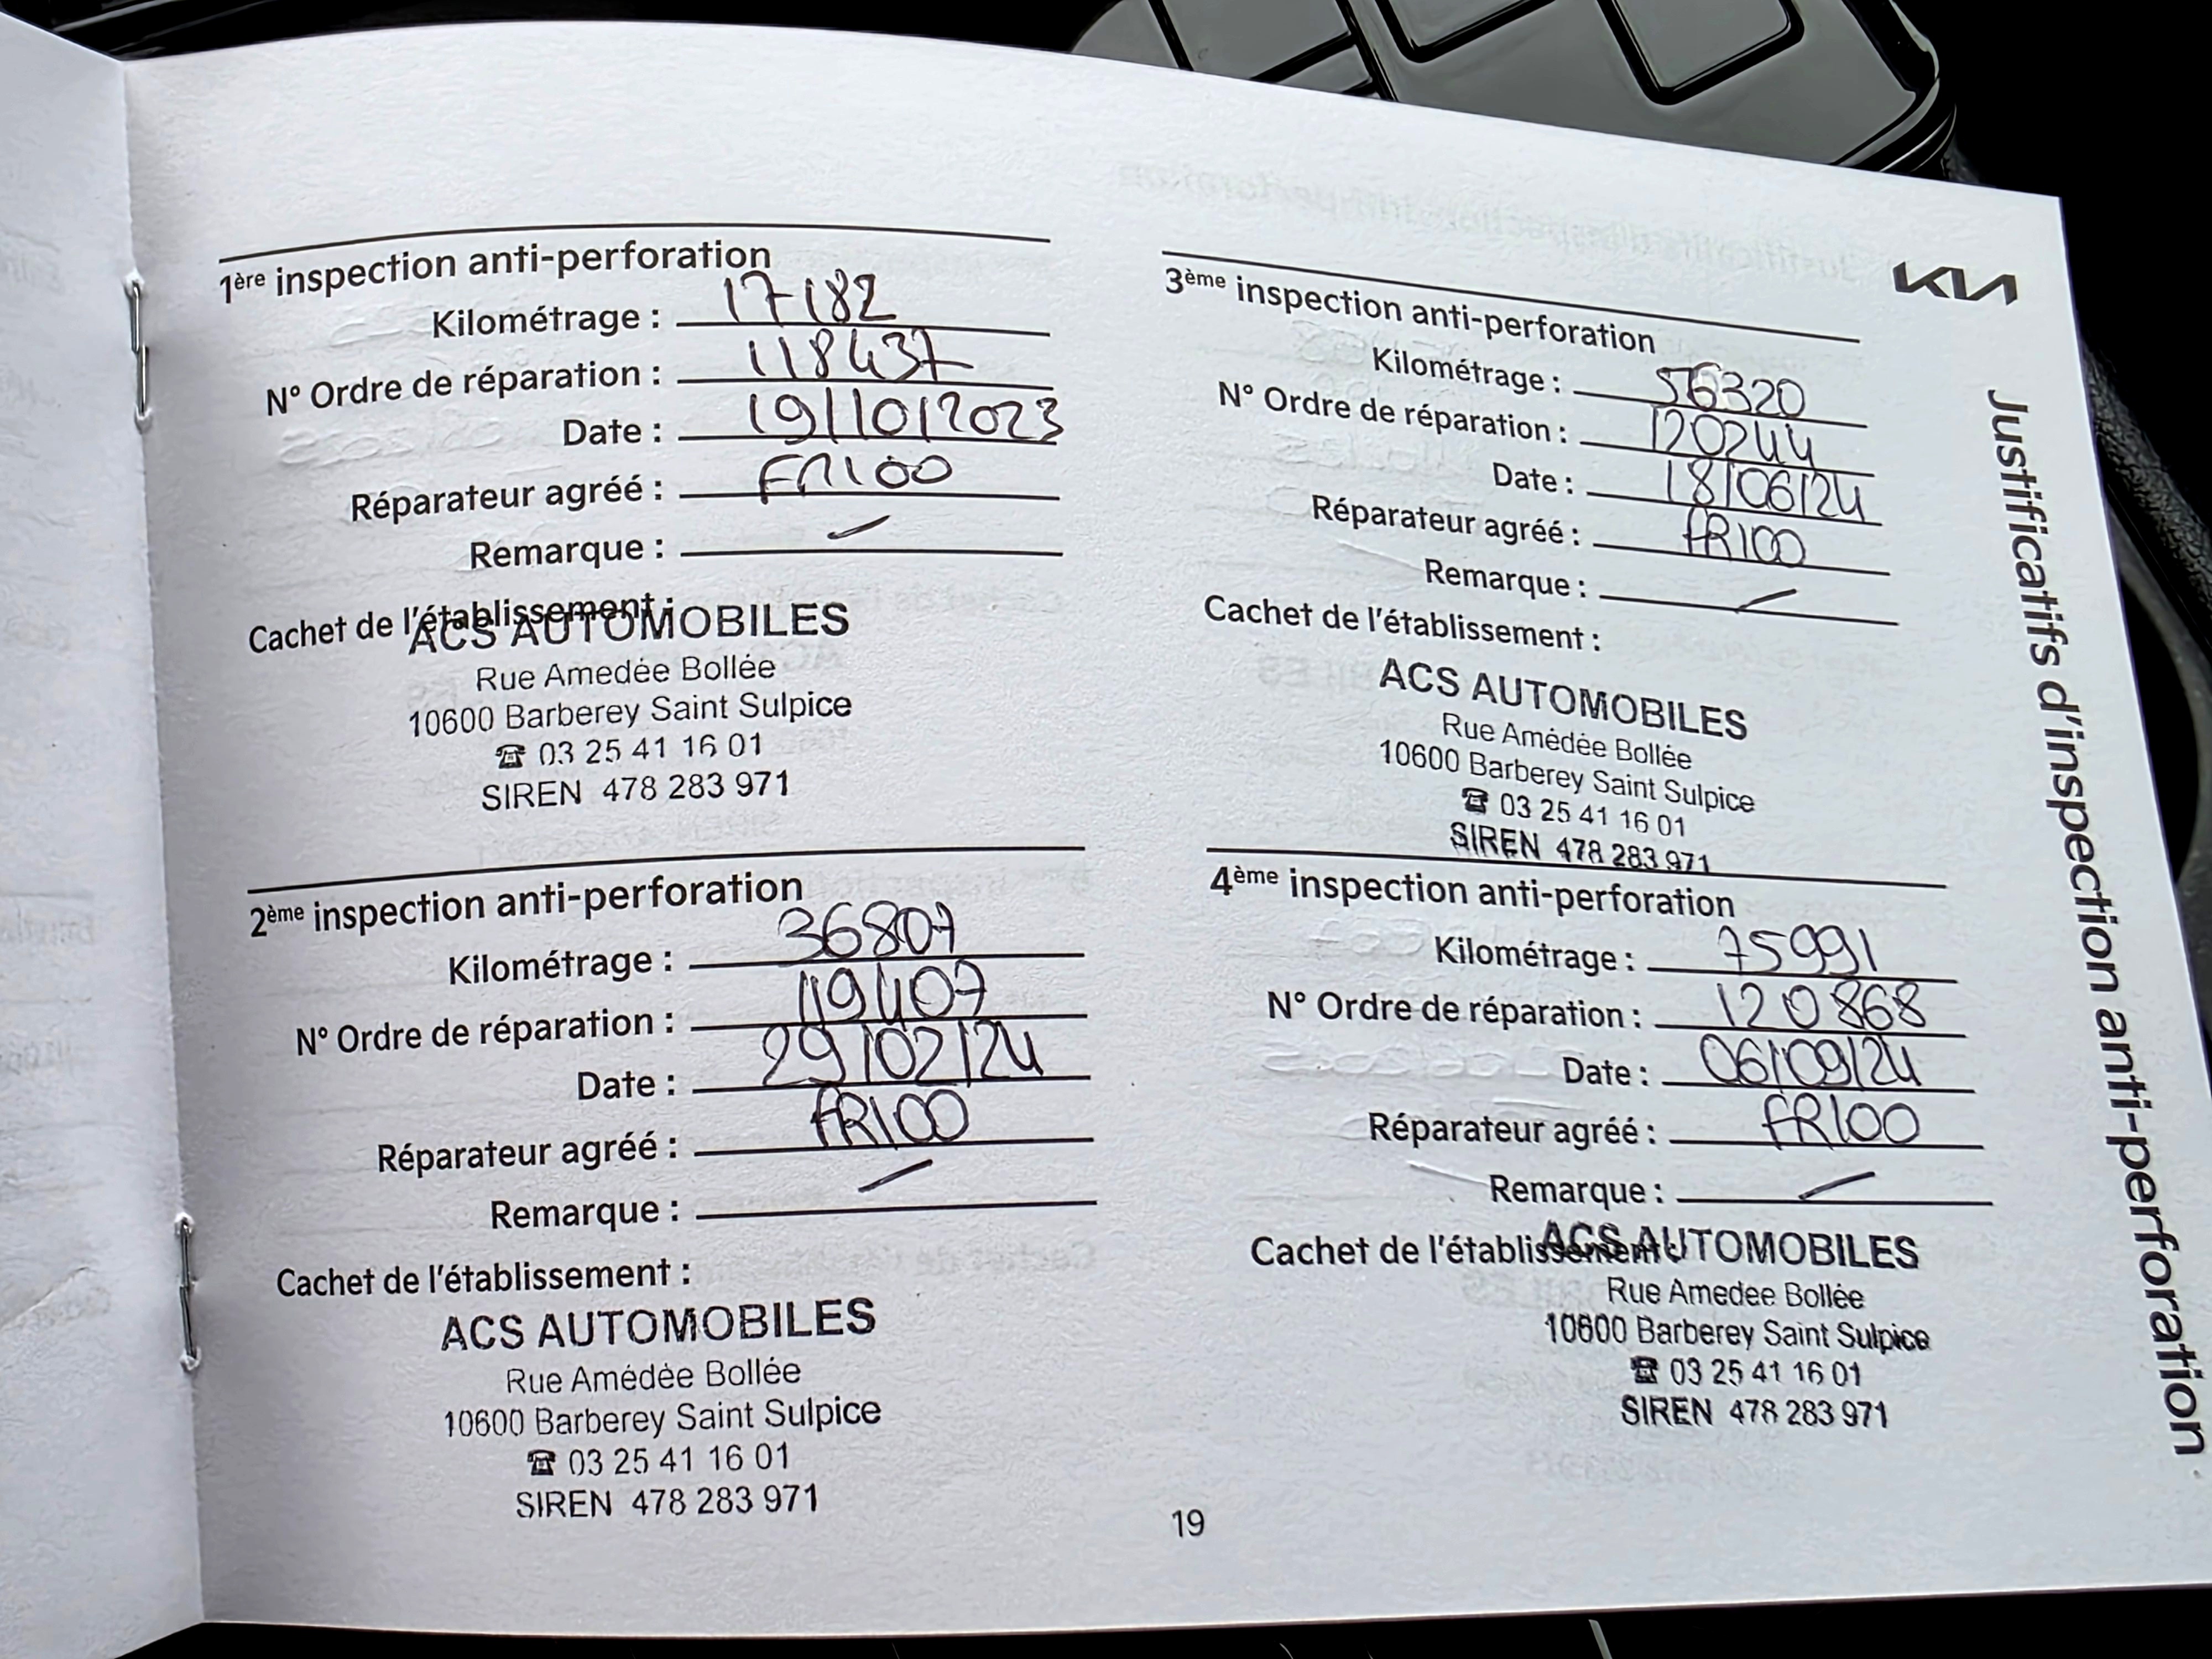 1ère inspection anti-perforation
Kilométrage : 17182
N° Ordre de réparation : 118437
Date : 19/10/2023
Réparateur agréé : FR100
Remarque : /
Cachet de l'établissement :
ACS AUTOMOBILES
Rue Amedée Bollée
10600 Barberey Saint Sulpice
☎ 03 25 41 16 01
SIREN 478 283 971
2ème inspection anti-perforation
Kilométrage : 36807
N° Ordre de réparation : 119407
Date : 29/02/24
Réparateur agréé : FR100
Remarque : /
Cachet de l'établissement :
ACS AUTOMOBILES
Rue Amédée Bollée
10600 Barberey Saint Sulpice
☎ 03 25 41 16 01
SIREN 478 283 971
3ème inspection anti-perforation
Kilométrage : 56320
N° Ordre de réparation : 120244
Date : 18/06/24
Réparateur agréé : FR100
Remarque : /
Cachet de l'établissement :
ACS AUTOMOBILES
Rue Amédée Bollée
10600 Barberey Saint Sulpice
☎ 03 25 41 16 01
SIREN 478 283 971
4ème inspection anti-perforation
Kilométrage : 75991
N° Ordre de réparation : 120868
Date : 06/09/24
Réparateur agréé : FR100
Remarque : /
Cachet de l'établissement :
ACS AUTOMOBILES
Rue Amedee Bollée
10600 Barberey Saint Sulpice
☎ 03 25 41 16 01
SIREN 478 283 971
KIA
Justificatifs d'inspection anti-perforation
19